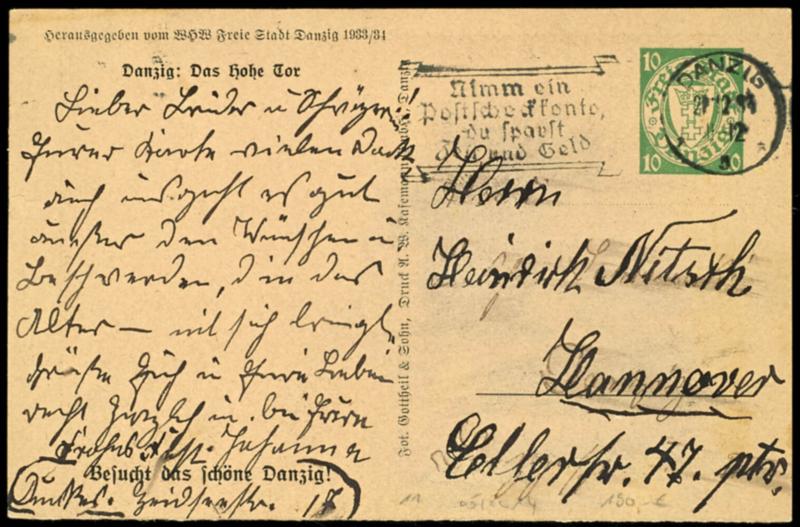 Herausgegeben vom WHW Freie Stadt Danzig 1933/34
Danzig: Das Hohe Tor
Lieber Bruder u
Eurer Karte vielen Dank
auch uns geht es gut
außer den
Beschwerden, d in das
Alter — mit sich bringt.
Grüße Euch u Eure Lieben
recht herzlich u.
Johanna
Besucht das schöne Danzig!
18
Fot. Gottheil & Sohn, Druck A. W. Kafemann GmbH., Danzig
Nimm ein
Postscheckkonto,
du sparst
Zeit und Geld
10
Freie Stadt
Danzig
10
DANZIG
12
Herrn
Heinrich Nitsch
Hannover
Ellerstr. 47. ptr.
11
150,- €